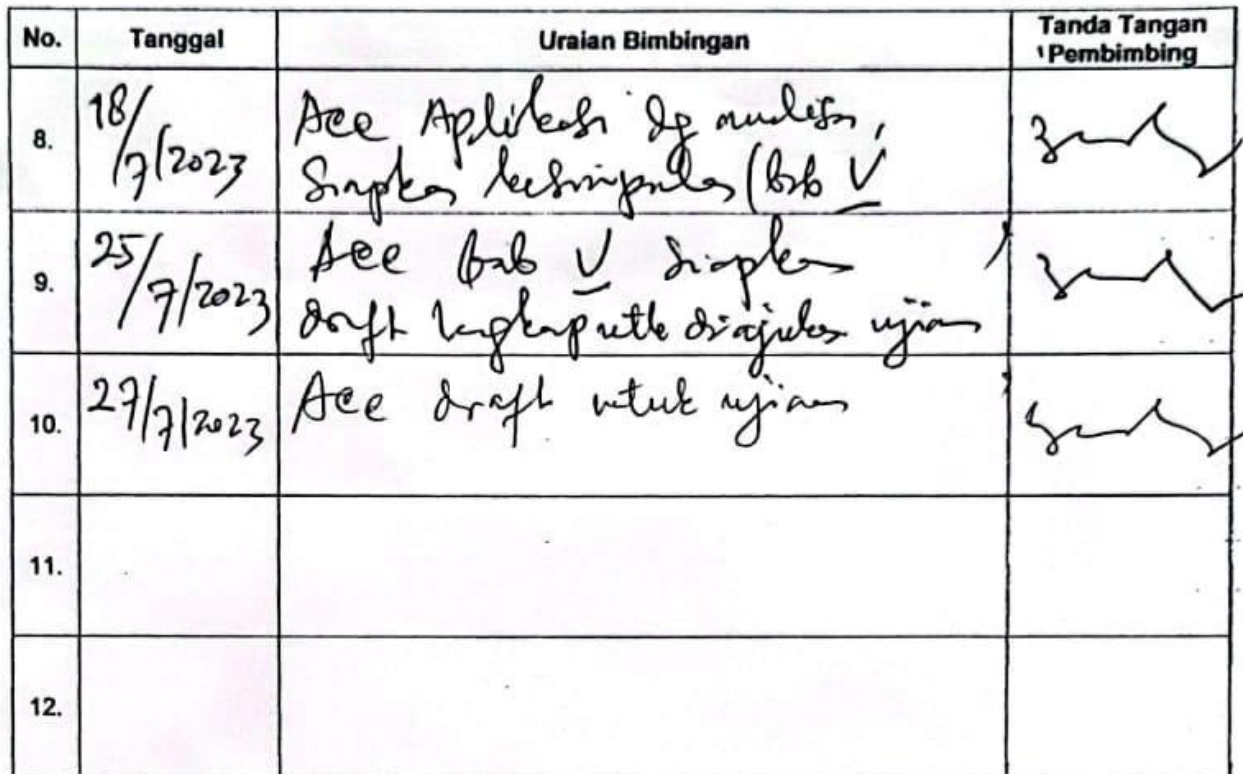 No. Tanggal Uraian Bimbingan Tanda Tangan
Pembimbing
8. 18/7/2023 Acc Aplikasi dg analisa,
Siapkan kesimpulan (bab V
9. 25/7/2023 Acc bab V Siapkan
draft lengkap utk diajukan ujian
10. 27/7/2023 Acc draft untuk ujian
11.
12.